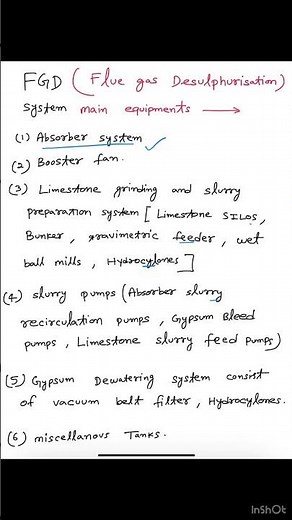 FGD ( Flue gas Desulphurisation)
system main equipments →
(1) Absorber system ✓
(2) Booster fan.
(3) Limestone grinding and slurry
preparation system [ Limestone SILOS,
Bunker, gravimetric feeder, wet
ball mills, Hydrocylones ]
(4) slurry pumps ( Absorber slurry
recirculation pumps, Gypsum Bleed
pumps, Limestone slurry feed pumps )
(5) Gypsum Dewatering system consist
of vacuum belt filter, Hydrocylones.
(6) miscellanous Tanks.
InShOt